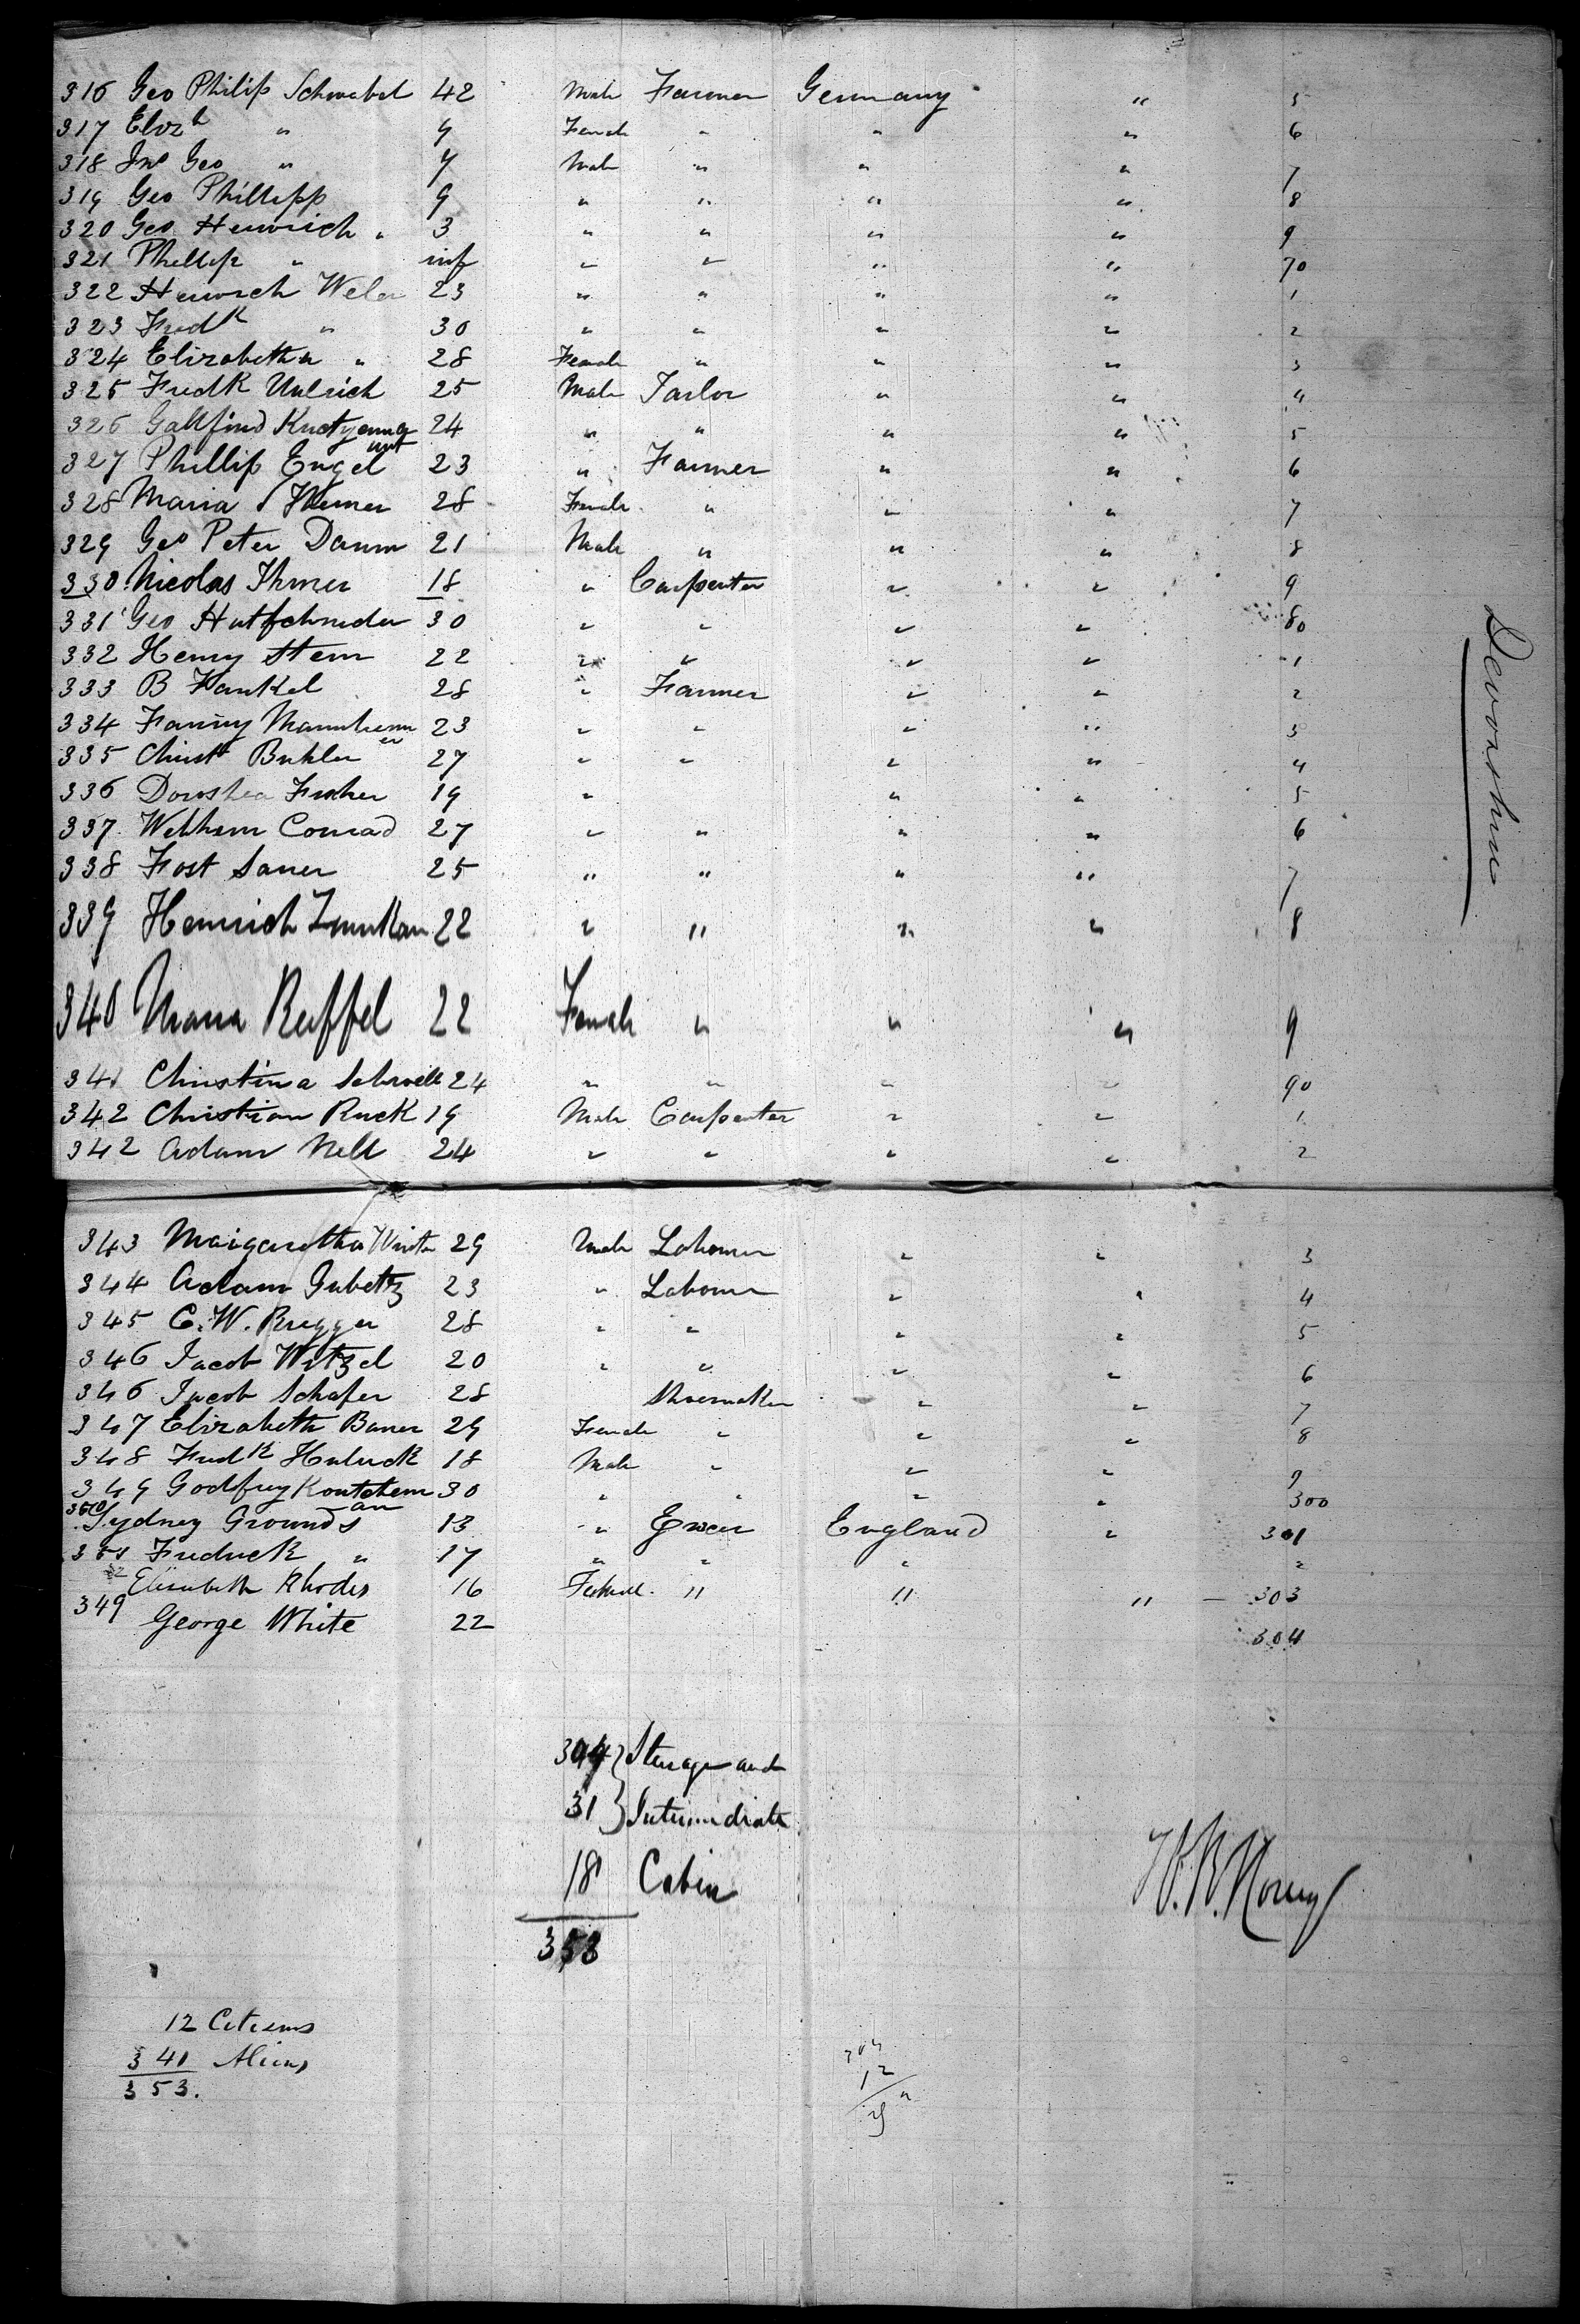 316 Geo Philip Schwabel 42 Male Farmer Germany " 5
317 Elizh " 9 Female " " " 6
318 Jno Geo " 7 Male " " " 7
319 Geo Phillipp 9 " " " " 8
320 Geo Heinrich " 3 " " " " 9
321 Phillip " inf " " " " 70
322 Heinrich Weler 23 " " " " 1
323 Fredk " 30 " " " " 2
324 Elizabetha " 28 Female " " " 3
325 Fredk Unlrich 25 Male Tailor " " 4
326 24 " " " " 5
327 Phillip Engel 23 " Farmer " " 6
328 Maria 28 Female " " " 7
329 Geo Peter Damm 21 Male " " " 8
330 Nicolas Ihmer 18 " Carpenter " " 9
331 Geo Hutfchneder 30 " " " " 80
332 Henry Stern 22 " " " " 1
333 B Fankel 28 " Farmer " " 2
334 Fanny Mannheimer 23 " " " " 3
335 Christ Buhler 27 " " " " 4
336 Dorothea Fisher 19 " " " 5
337 Welhem Conrad 27 " " " " 6
338 Fost Saner 25 " " " " 7
339 Heinrich 22 " " " " 8
340 Maria Ruffel 22 Female " " " 9
341 Christina Schwell 24 " " " " 90
342 Christian Ruck 19 Male Carpenter " " 1
342 Adam Nell 24 " " " " 2
343 Maigaretha Winter 29 Male Labourer " " 3
344 Adam Gubettz 23 " Labourer " " 4
345 C. W. Brugger 28 " " " " 5
346 Jacob Witzel 20 " " " " 6
346 Jacob Schafer 28 Shoemaker " " 7
347 Elizabeth Baner 29 Female " " " 8
348 Fredk Huluck 18 Male " " " 9
349 Godfrey Kontcheman 30 " " " " 300
350 Sydney Grounds 13 " Grocer England " 301
351 Fredrick " 17 " " " 2
52 Elisabeth Rhodes 16 Female " " " — 303
349 George White 22 304
Devonshire
304 } Steerage and
31 } Intermediate
18 Cabin
353
W. B. Norny
12 Citizens
341 Aliens
353.
303
12